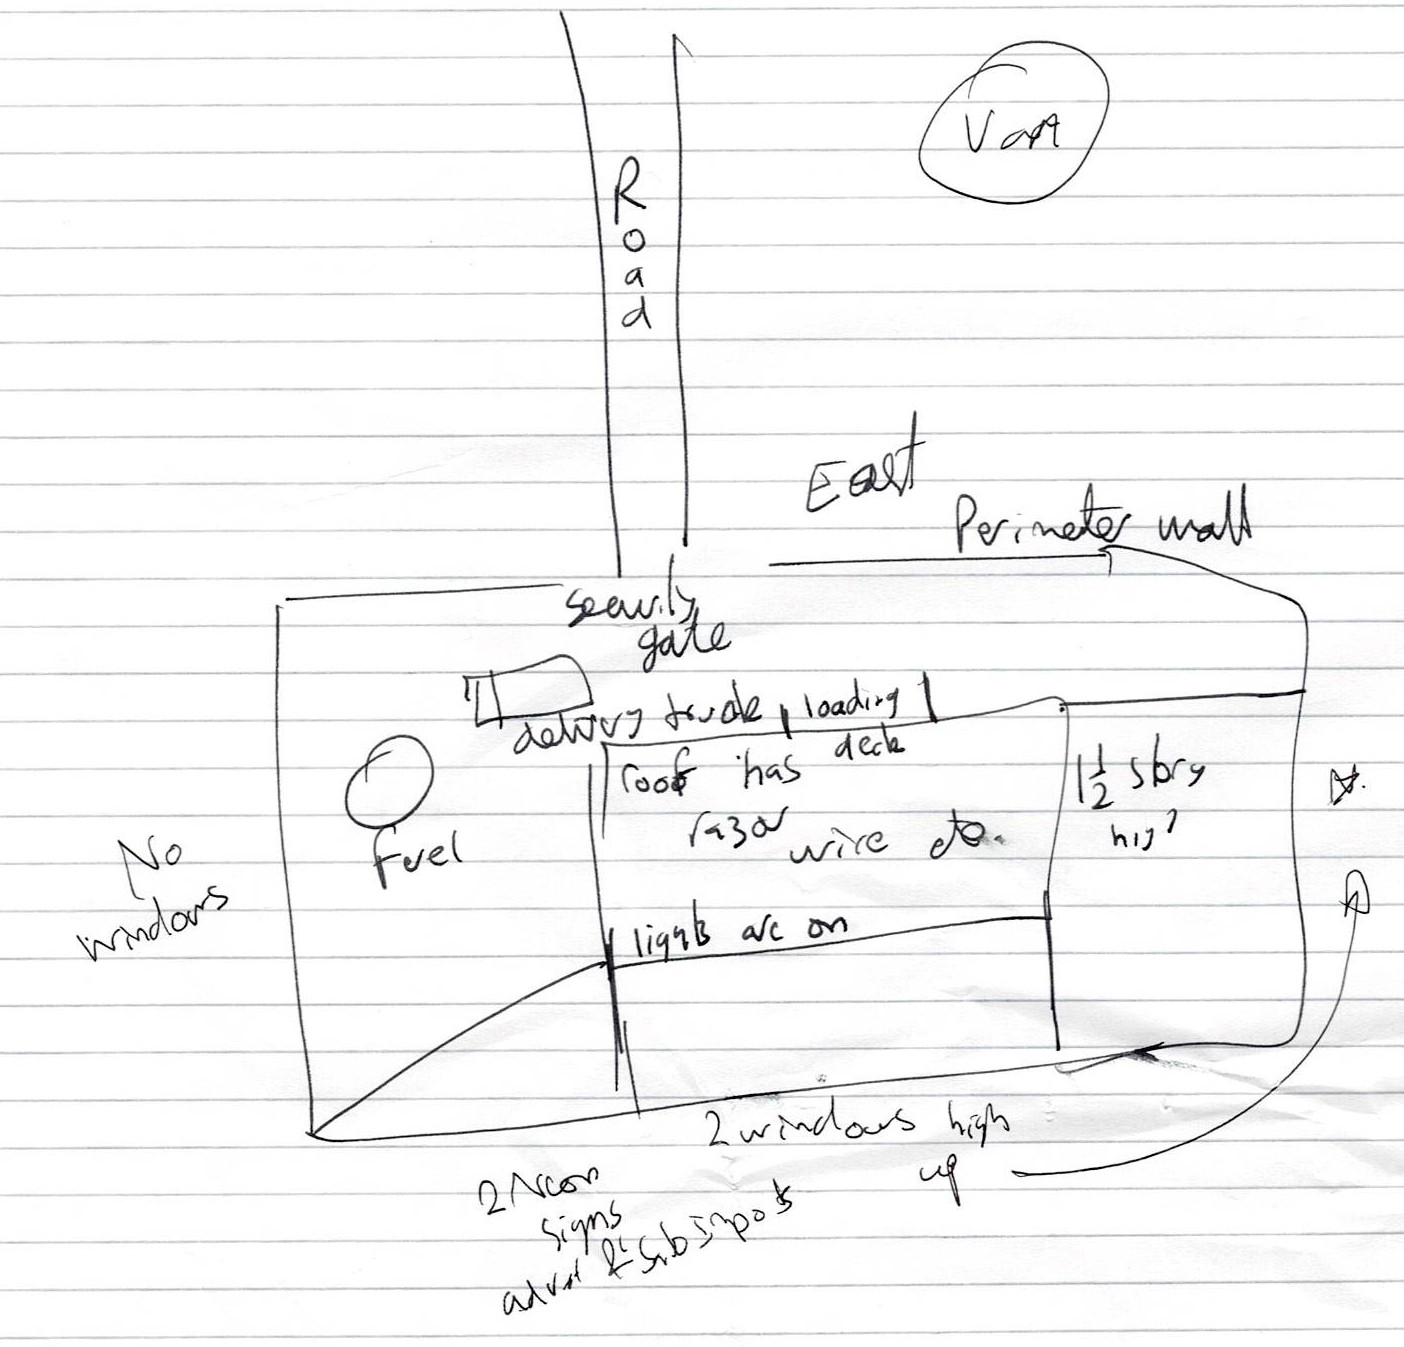 Road
Van
East
Perimeter wall
security
gate
delivery truck
loading
deck
roof has
razor
wire etc.
1 1/2 story
high
fuel
No
windows
lights are on
2 windows high
up
2 Neon
signs
advert